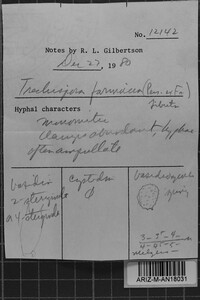 No. 12142
Notes by R. L. Gilbertson
Dec 27, 1980
Trechispora farinacea (Pers. ex Fr.) Liberta
Hyphal characters
monomitic
clamps abundant, hyphae
often ampullate
basidia
2-sterigmate
or 4-sterigmate
cystidia
Ø
basidiospores
3-
4-
ARIZ-M-AN18031